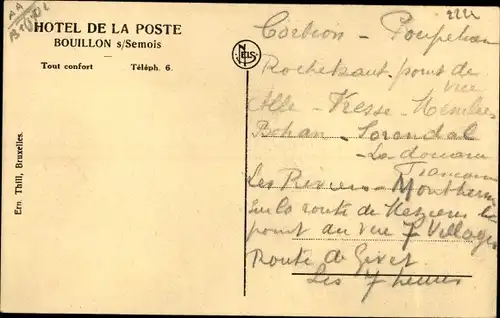 HOTEL DE LA POSTE
BOUILLON s/Semois
Tout confort Téléph. 6.
NELS
Ern. Thill, Bruxelles.
Corbion - Poupehan
Rochehaut - point de
vue
Alle - Vresse - Membre
Bohan - Sorendal
La douane
Les Rivières Montherm
Sur la route de Mezieres le
point du vue 7 Villages
Route de Givet
Les 7 heures